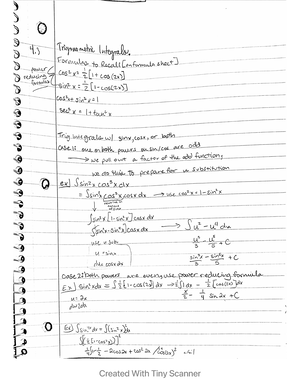 4.3 Trigonometric Integrals.
Formulas to Recall [on formula sheet]
power reducing formulas
cos²x = ½[1+cos(2x)]
sin²x = ½[1-cos(2x)]
cos²+sin²x=1
sec²x = 1+tan²x
Trig integrals w/ sinx, cosx, or both
case 1: one or both powers on sin/cos are odd
→ we pull out a factor of the odd function,
we do this to prepare for u substitution
ex) ∫sin²x cos³x dx
= ∫sin²x cos²x cosx dx → use cos²x = 1-sin²x
∫sin²x [1-sin²x] cosx dx
∫[sin²x-sin⁴x] cosx dx → ∫u² - u⁴ du
use u-sub
u³/3 - u⁵/5 + C
u = sinx
du = cosx dx
sin³x/3 - sin⁵x/5 + C
Case 2: both powers are even, use power reducing formula
Ex) ∫sin²x dx = ∫½[1-cos(2x)] dx
u = 2x
sin 2x + C
Ex) ∫sin⁴x dx = ∫(sin²x)²
Created With Tiny Scanner